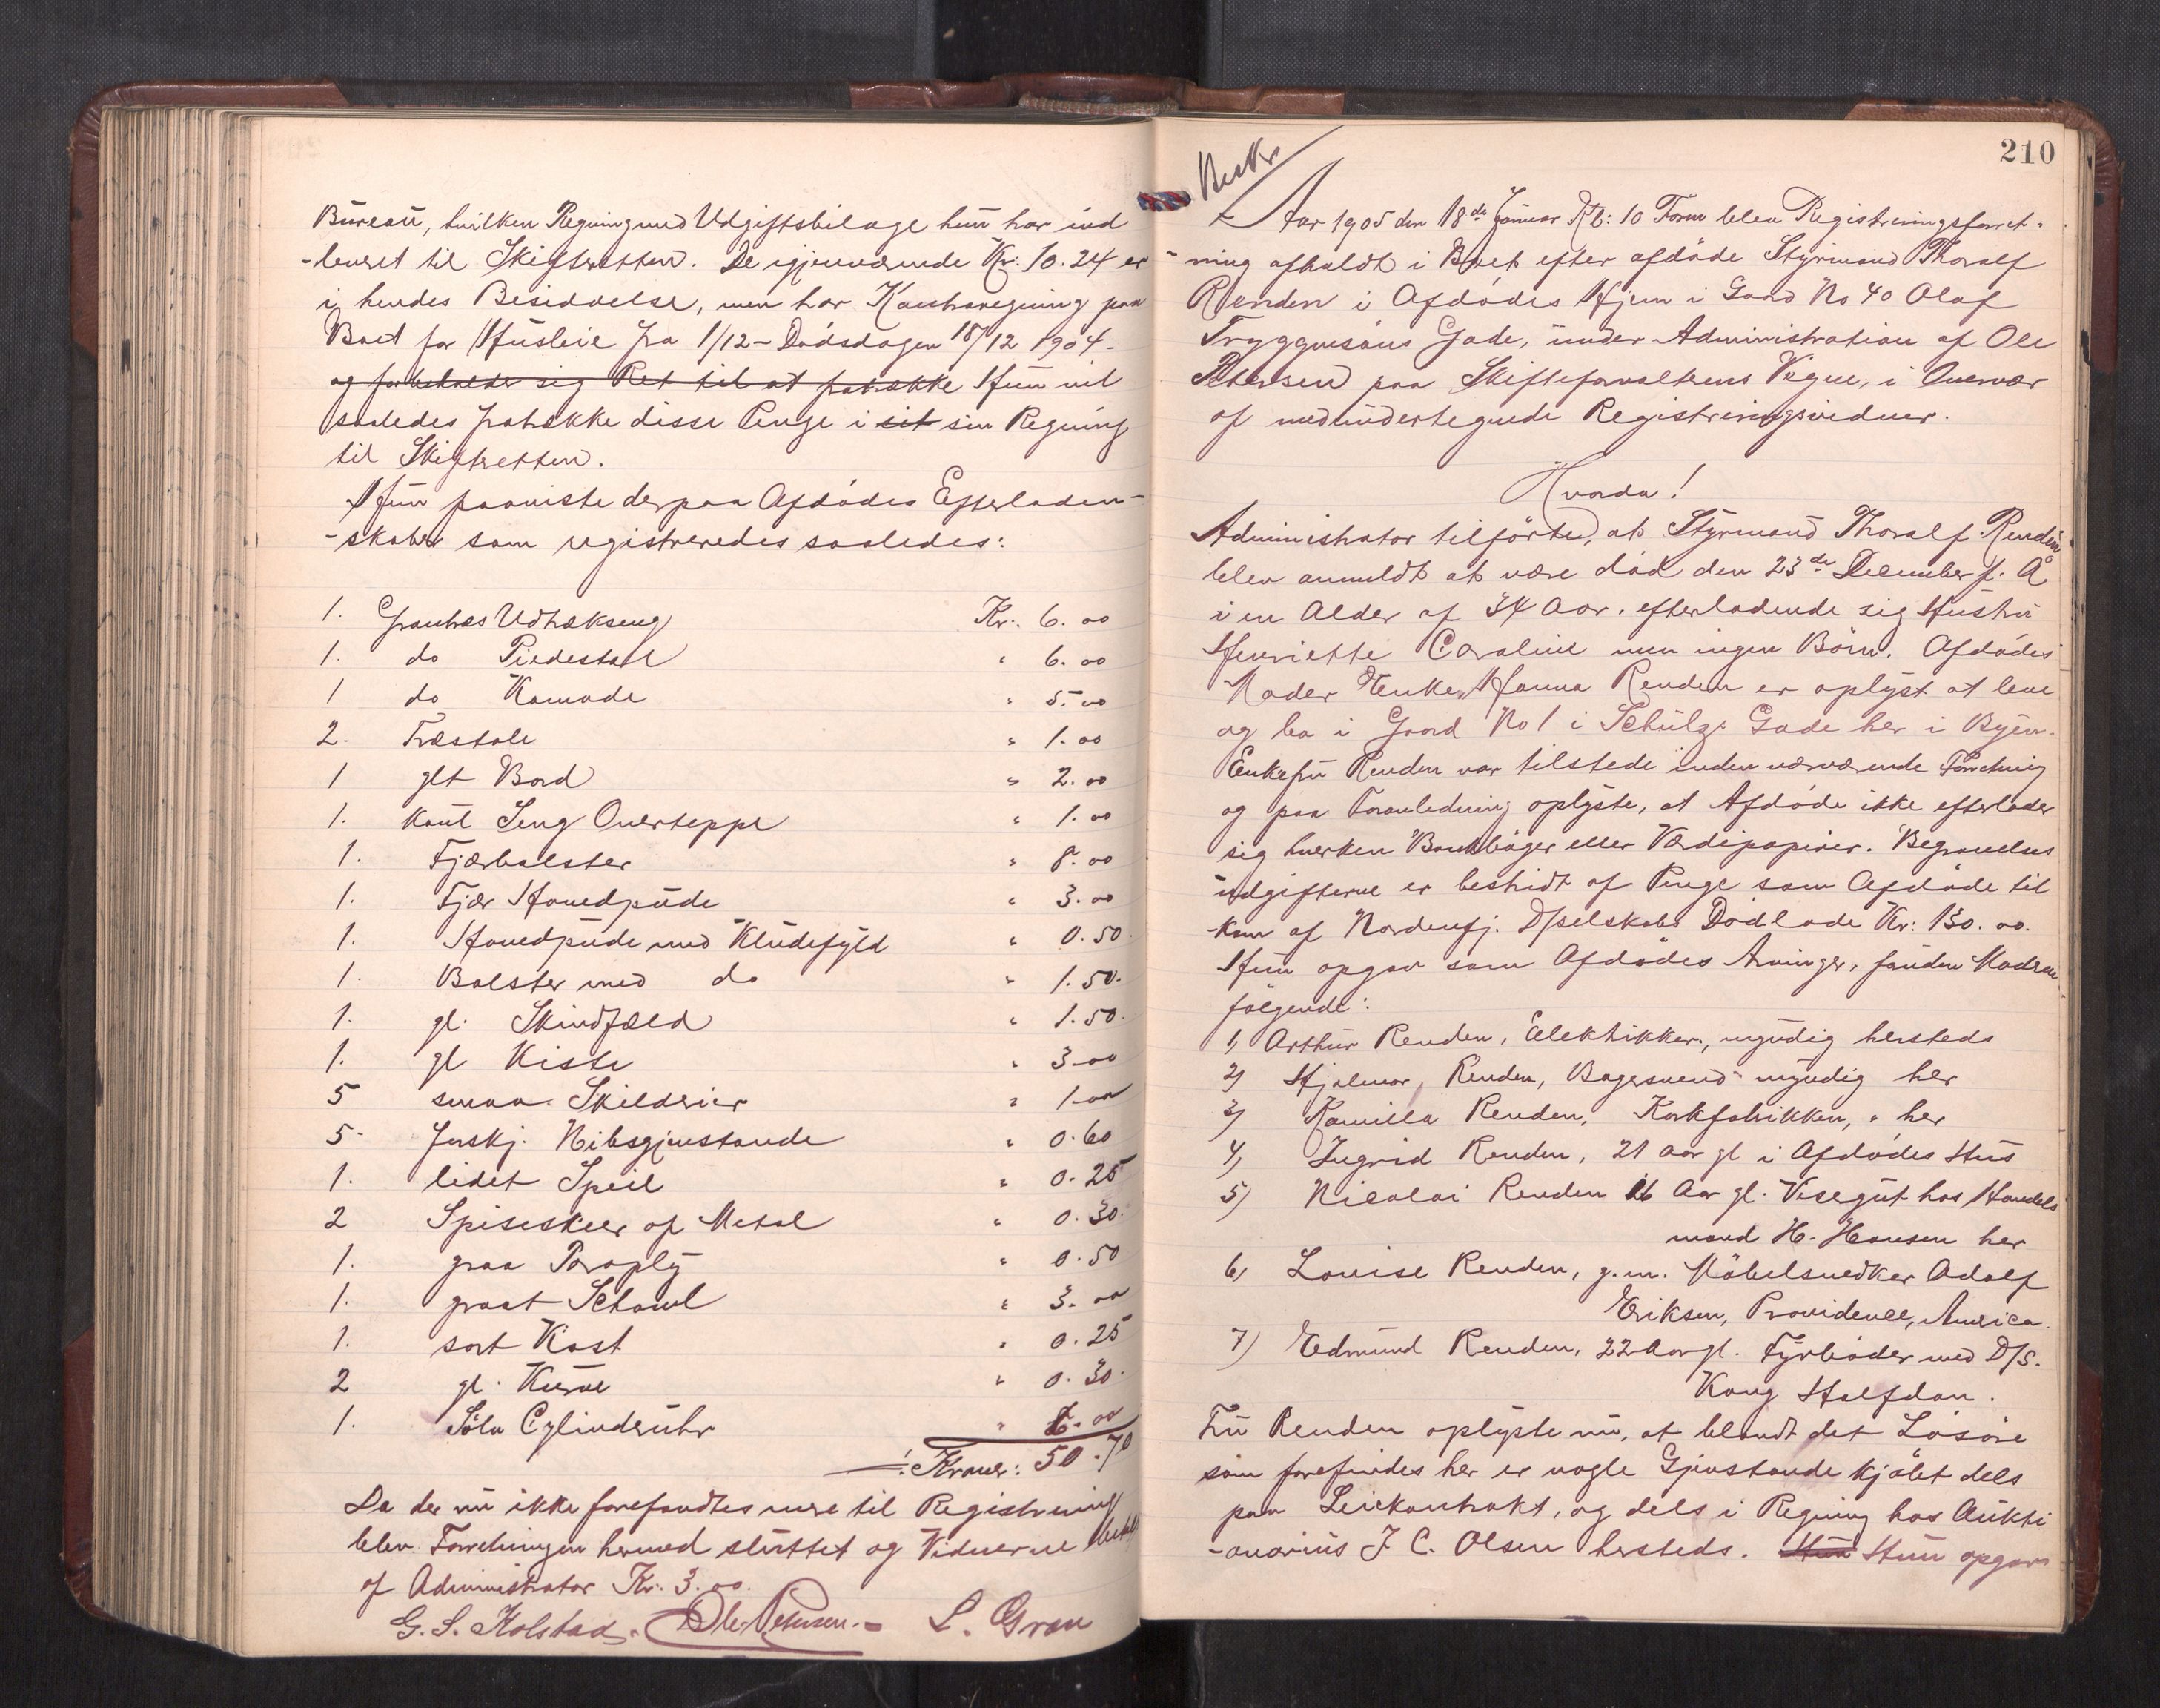 Büreaü, hvilken Regning med Udgiftsbilage hün har ind
-leveret til Skifteretten. De igjenværende Kr: 10.24 er
i hendes Besiddelse, men har Kontraregning paa
Boet for Hüsleie fra 1/12 - Dödsdagen 18/12 1904.
og forbeholder sig Ret til at fratrække Hün vil
saaledes fratrække disse Penge i sit sin Regning
til Skifteretten.
Hün paaviste derpaa Afdödes Efterladen-
-skaber som registreredes saaledes:
1. Grantræs Udtrækseng Kr: 6.00
1. do Piedestal " 6.00
1 do Komode " 5.00
2. Træstole " 1.00
1 glt Bord " 2.00
1. Seng Overteppe " 1.00
1. Fjærbolster " 8.00
1. Fjær Hovedpüde " 3.00
1. Hovedpüde med Klüdefyld " 0.50
1. Bolster med do " 1.50.
1. gl. Skindfæld " 1.50.
1. gl Kiste " 3.00
5 smaa Skilderier " 1.00
5. forskj. Nibsgjenstande " 0.60
1. lidet Speil " 0.25
2 Spiseskeer af Metal " 0.30.
1. graa Paraply " 0.50
1. graat Schawl " 3.00
1. sort Kost " 0.25
2 gl. Kürve " 0.30.
1. Sölv Cylinderühr " 6.00
Kroner: 50.70
Da der nü ikke forefandtes mere til Registrering
blev Forretningen hermed slüttet og Vidnerne betalt
af Administrator Kr: 3.00.
G. S. Kolstad. Ole Petersen.- L. Gran
210
Aar 1905 den 18de Januar Kl: 10 Form blev Registreringsforret-
-ning afholdt i Boet efter afdöde Styrmand Thoralf
Renden i Afdödes Hjem i Gaard No 40 Olaf
Tryggvesöns Gade, ünder Administration af Ole
Petersen paa Skifteforvalterens Vegne, i Overvær
af medündertegnede Registreringsvidner.
Hvorda!
Administrator tilförte, at Styrmand Thoralf Renden
blev anmeldt at være död den 23de December f. A
i en Alder af 34 Aar. efterladende sig Hüstrü
Henriette Caroline men ingen Börn. Afdödes
Moder Enkefrü Hanna Renden er oplyst at leve
og bo i Gaard No 1 i Schülz. Gade her i Byen.
Enkefrü Renden var tilstede ünder nærværende Forretning
og paa Foranledning oplyste, at Afdöde ikke efterlader
sig hverken Bankböger eller Værdipapirer. Begravelses
üdgifterne er bestridt af Penge som Afdöde til
-kom af Nordenfj. D/selskabs Dödlade Kr: 130.00.
Hün opgav som Afdödes Arvinger, foruden Moderen
fölgende:
1, Arthür Renden, Elektrikker, myndig hersteds
2) Hjalmar, Renden, Bagersvend myndig her
3) Kamilla Renden, Korkfabrikken, " her
4, Ingrid Renden, 21 Aar gl i Afdödes Hüs
5) Nicolai Renden 16 Aar gl. Visegüt hos Handels
mand H. Hansen her
6, Lovise Renden, g.m. Möbelsnedker Adolf
Eriksen, Providence, America.
7) Edmünd Renden, 22 Aar gl. Fyrböder med D/S.
Kong Halfdan.
Frü Renden oplyste nü, at blandt det Lösöre
som forefindes her er nogle Gjenstande kjöbt dels
paa Leiekontrakt, og dels i Regning hos Aükti
-onariüs J C. Olsen hersteds. Hün Hün opgav